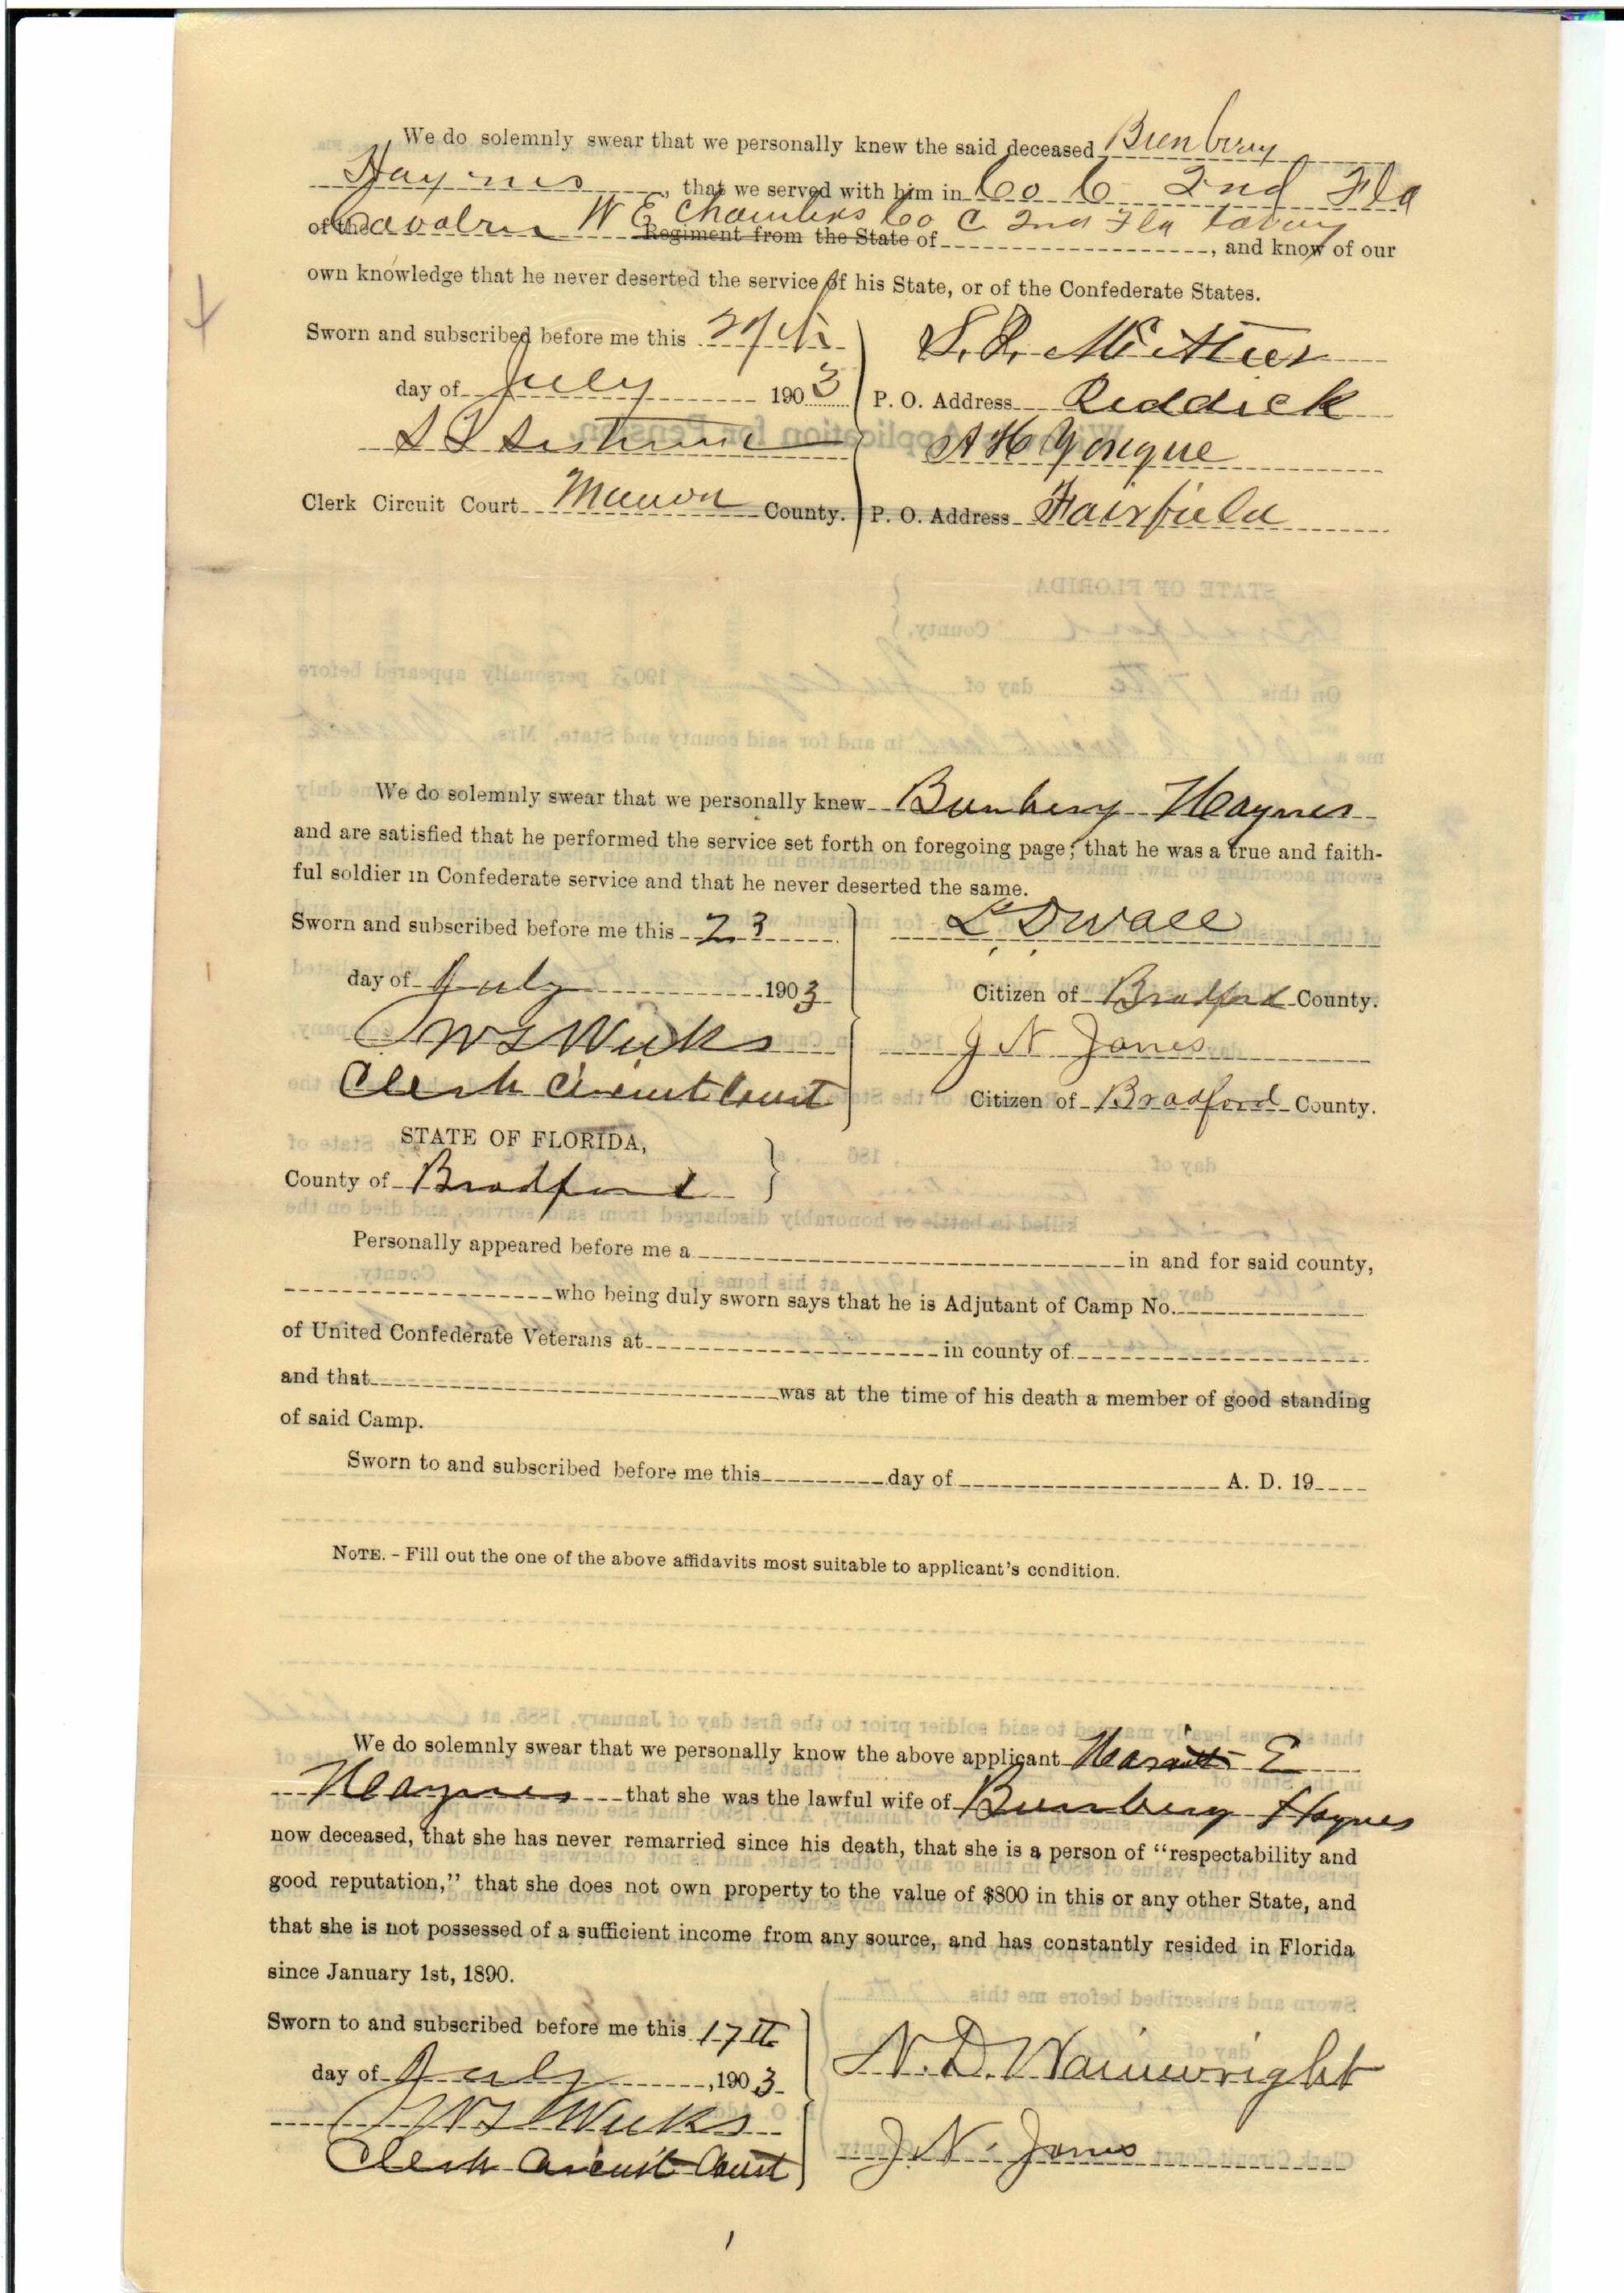 We do solemnly swear that we personally knew the said deceased Bunberry
Haynes, that we served with him in Co C 2nd Fla
of the Cavalry W E Chambers Co C 2nd Fla Cavay
Regiment from the State of , and know of our
own knowledge that he never deserted the service of his State, or of the Confederate States.
Sworn and subscribed before me this
day of July 1903
Clerk Circuit Court Marion County.
P. O. Address Reddick
A H Yongue
P. O. Address Fairfield
We do solemnly swear that we personally knew Bunbery Haynes
and are satisfied that he performed the service set forth on foregoing page; that he was a true and faith-
ful soldier in Confederate service and that he never deserted the same.
Sworn and subscribed before me this 23
day of July 1903
W L Weeks
Clerk Circuit Court
Citizen of Bradford County.
J N Jones
Citizen of Bradford County.
STATE OF FLORIDA,
County of Bradford
Personally appeared before me a in and for said county,
who being duly sworn says that he is Adjutant of Camp No.
of United Confederate Veterans at in county of
and that was at the time of his death a member of good standing
of said Camp.
Sworn to and subscribed before me this day of A. D. 19
NOTE. - Fill out the one of the above affidavits most suitable to applicant's condition.
We do solemnly swear that we personally know the above applicant E
Haynes that she was the lawful wife of Bunbery Haynes
now deceased, that she has never remarried since his death, that she is a person of "respectability and
good reputation," that she does not own property to the value of $800 in this or any other State, and
that she is not possessed of a sufficient income from any source, and has constantly resided in Florida
since January 1st, 1890.
Sworn to and subscribed before me this 17th
day of July, 1903
W L Weeks
Clerk Circuit Court
N. D. Wainwright
J. N. Jones